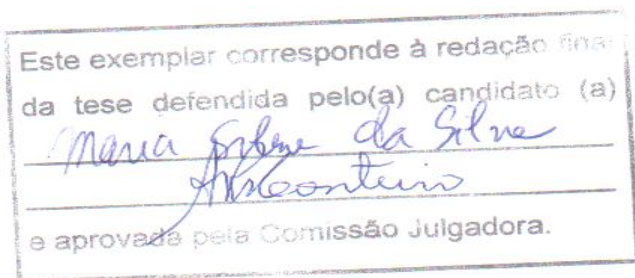 Este exemplar corresponde à redação final
da tese defendida pelo(a) candidato (a)
Maria da Silva
e aprovada pela Comissão Julgadora.